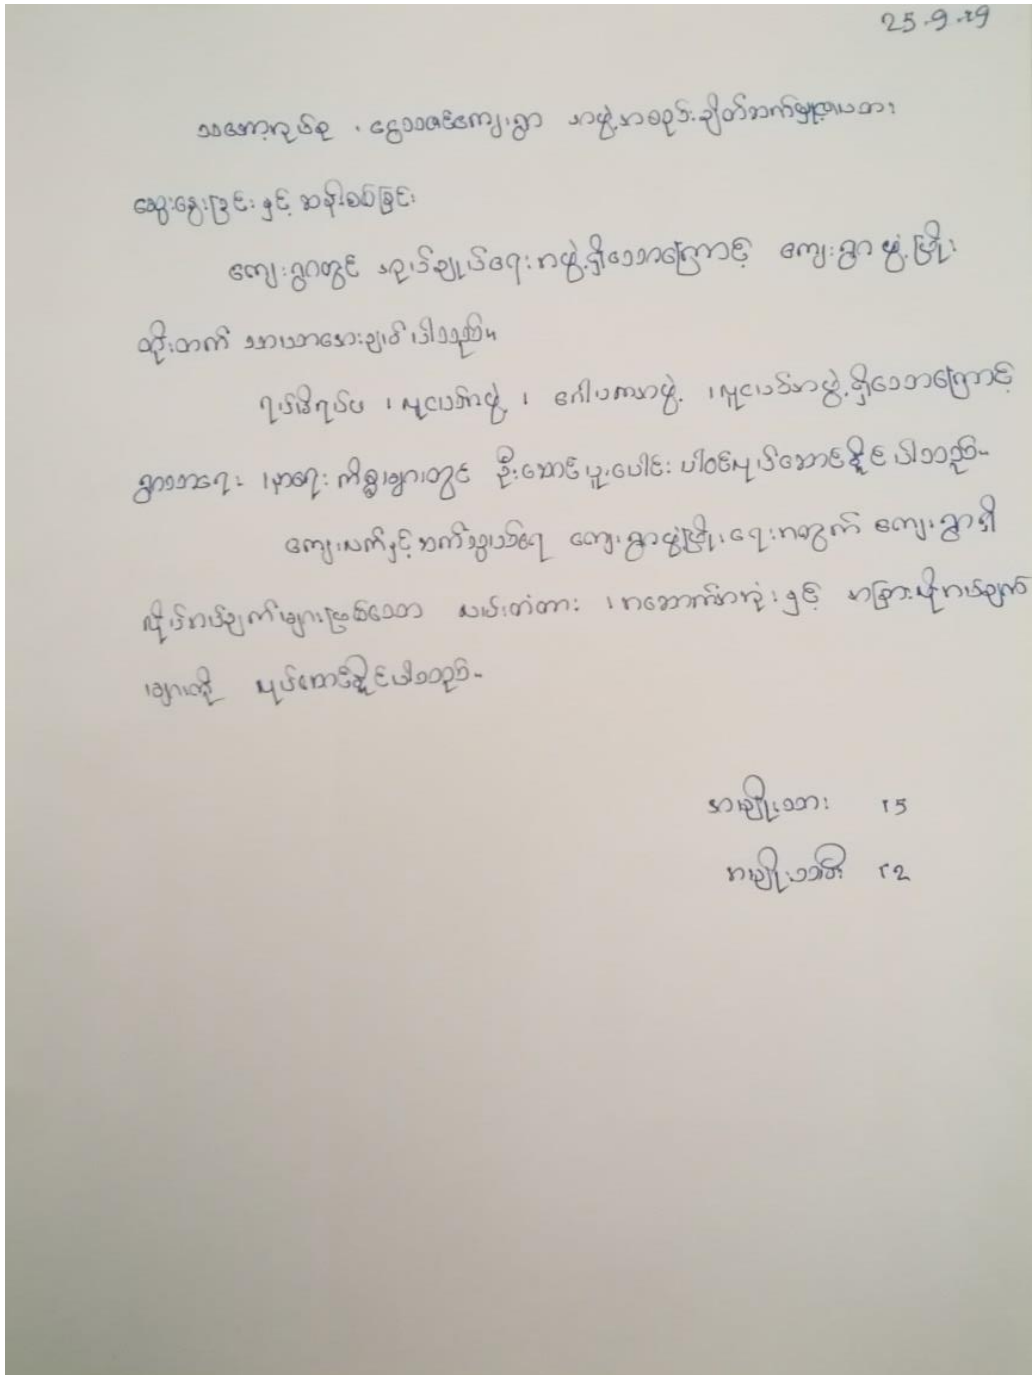 25.9.19
သဘော့လုပ်စု ၊ ငွေသဇင်ကျေးရွာ အဖွဲ့အစည်းချိတ်ဆက်မှု
ဆွေးနွေးခြင်း နှင့် ဆန်းစစ်ခြင်း
ကျေးရွာတွင် အုပ်ချုပ်ရေးအဖွဲ့ရှိသောကြောင့် ကျေးရွာ ဖွံ့ဖြိုး
တိုးတက် သာယာအေးချမ်းပါသည်။
ရပ်မိရပ်ဖ ၊ လူငယ်အဖွဲ့ ၊ ဂေါပကအဖွဲ့ ၊ လူငယ်အဖွဲ့ရှိသောကြောင့်
ရွာသာရေး ၊ နာရေး ကိစ္စများတွင် ဦးဆောင်ပူးပေါင်း ပါဝင်လုပ်ဆောင်နိုင်ပါသည်။
ကျေးလက်နှင့်ဆက်သွယ်၍ ကျေးရွာဖွံ့ဖြိုးရေးအတွက် ကျေးရွာရှိ
လိုအပ်ချက်များဖြစ်သော လမ်းတံတား ၊ အဆောက်အအုံး နှင့် အခြားလိုအပ်ချက်
များကို လုပ်ဆောင်နိုင်ပါသည်။
အမျိုးသား ၁၅
အမျိုးသမီး ၁၂